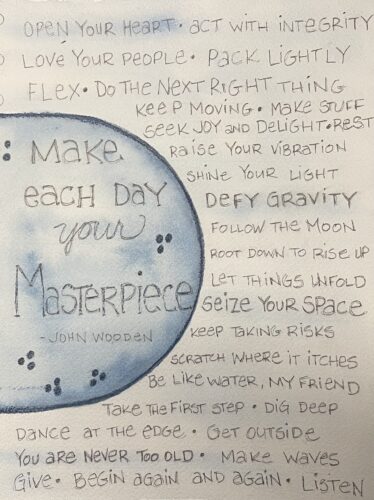 Open Your Heart • Act With Integrity
Love Your People • Pack Lightly
Flex • Do The Next Right Thing
Keep Moving • Make Stuff
Seek Joy and Delight • Rest
Raise Your Vibration
Shine Your Light
Defy Gravity
Follow The Moon
Root Down To Rise Up
Let Things Unfold
Seize Your Space
Keep Taking Risks
Scratch Where It Itches
Be Like Water, My Friend
Take The First Step • Dig Deep
Dance At The Edge • Get Outside
You Are Never Too Old • Make Waves
Give • Begin Again And Again • Listen
Make
Each Day
your
Masterpiece
- John Wooden